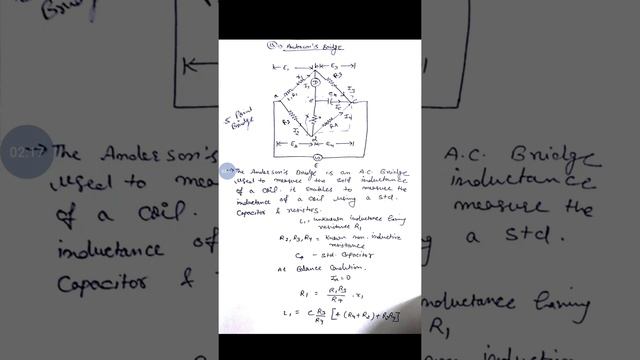 Anderson's Bridge
E₁
E₃
b
I₁
R₃
I₃
a
D
e
c
R₂
I₂
d
R₄
E₂
E₄
E
5 Point
Bridge
02:17
→ The Anderson's Bridge is an A.C. Bridge
used to measure the self inductance
of a coil. it enables to measure the
inductance of a coil using a std.
Capacitor & resistors.
L₁ - unknown inductance having
resistance R₁
R₂, R₃, R₄ = known non-inductive
resistance
C₄ - std. Capacitor
At Balance Condition.
R₁ = R₂R₃/R₄ - r₁
L₁ = C R₃/R₄ [r (R₄+R₂) + R₂R₄]
→ The Anderson's
used to mea
of a coil.
inductance of
Capacitor &
A.C. Bridge
inductance
measure the
a std.
inductance having
R₁